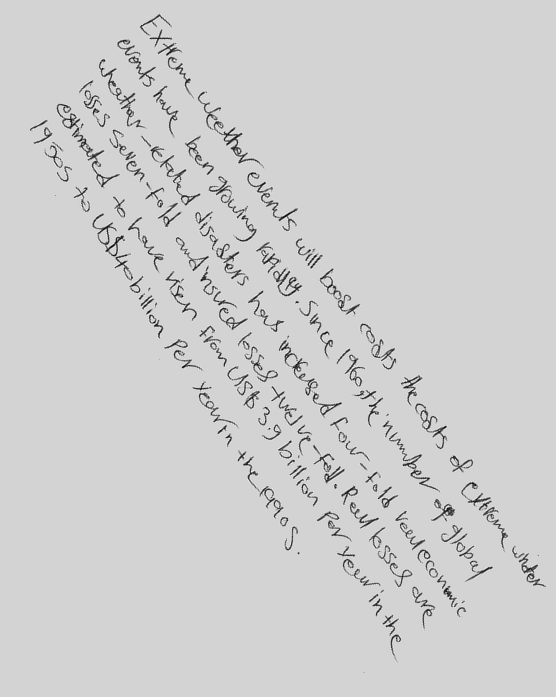 Extreme Weether events will boost costs the costs of extreme winter
events have been growing rapidly. Since 1960, the number of global
wheather-related disasters has increased four-fold real economic
losses seven-fold and insured losses twelve-fold. Real losses are
estimated to have risen from US$ 3.9 billion per year in the
1950s to US$40 billion per year in the 1990s.